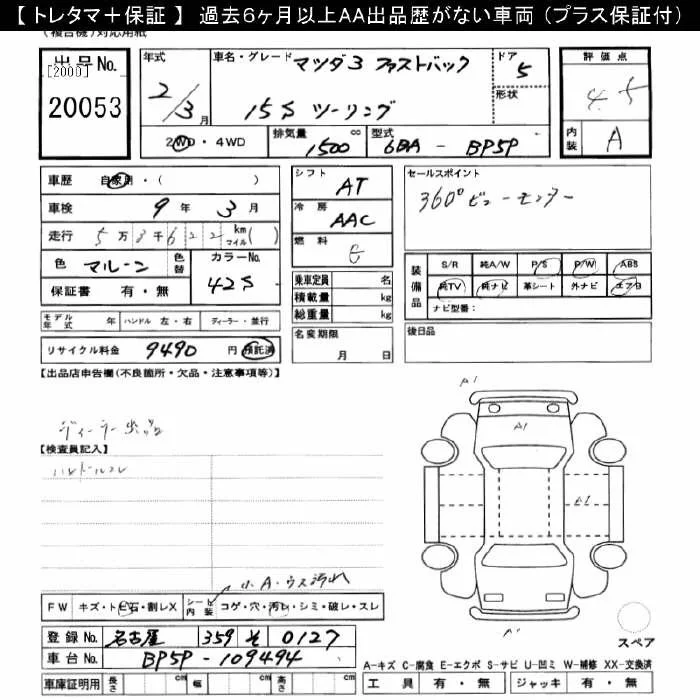 【 トレタマ＋保証 】 過去6ヶ月以上AA出品歴がない車両（プラス保証付）
（複合機）対応用紙
出品No.
[2000]
20053
年式
2/3月
車名・グレード
マツダ3 ファストバック
15S ツーリング
ドア
5
形状
評価点
4.5
内装
A
2WD・4WD
排気量 1500 cc
型式 6BA - BP5P
車歴 自家用・( )
車検 9年 3月
走行 5万3千622 km マイル( )
色 マルーン
色替
カラーNo.
42S
保証書 有・無
シフト
AT
冷房
AAC
燃料
G
乗車定員 名
積載量 kg
総重量 kg
セールスポイント
360°ビューモニター
装備品
S/R 純A/W P/S P/W ABS
純TV 純ナビ 革シート 外ナビ エアB
ナビ型番：
モデル年式 年 ハンドル 左・右 ディーラー・並行
名変期限
月 日
後日品
リサイクル料金 9490 円 預託済
【出品店申告欄(不良箇所・欠品・注意事項等)】
ディーラー出品
【検査員記入】
ハンドルスレ
A1
A1
A1
小A・ウス汚れ
FW キズ・トビ石・割レX
シート内装 コゲ・穴・汚レ・シミ・破レ・スレ
スペア
登録No. 名古屋 359 そ 0127
車台No. BP5P-109494
A-キズ C-腐食 E-エクボ S-サビ U-凹ミ W-補修 XX-交換済
車庫証明用 長さ cm 幅 cm 高さ cm
工具 有・無 ジャッキ 有・無